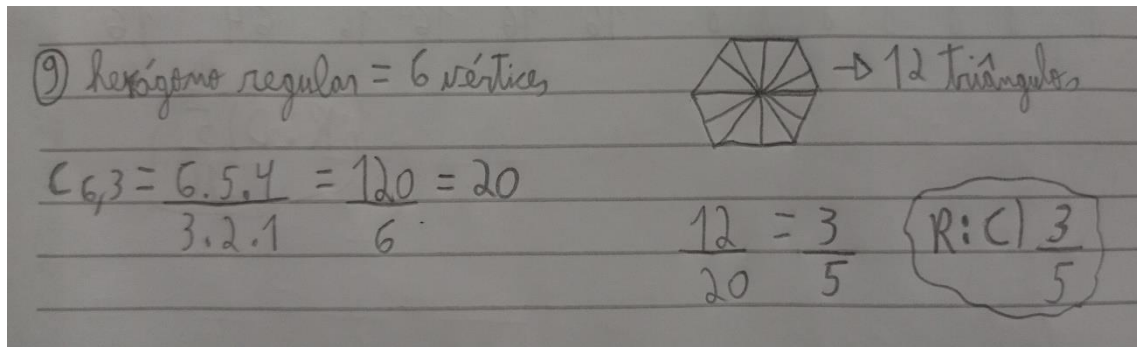 9) hexágono regular = 6 vértices → 12 triângulos
C6,3 = 6.5.4/3.2.1 = 120/6 = 20
12/20 = 3/5 R: C) 3/5